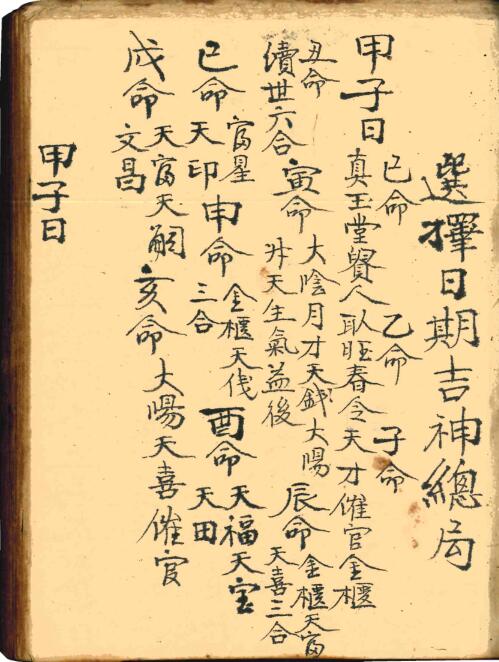 選擇日期吉神總局
甲子日 己命 乙命 子命
真玉堂貴人 馭旺春令天才催官金櫃
丑命 續世六合 寅命 大陰月才天錢大陽
升天生氣益後 辰命 金櫃天富
天喜三合
巳命 富星
天印 申命 金櫃天伐
三合 酉命 天福天宝
天田
戌命 天富天嗣
文昌 亥命 大陽天喜催官
甲子日